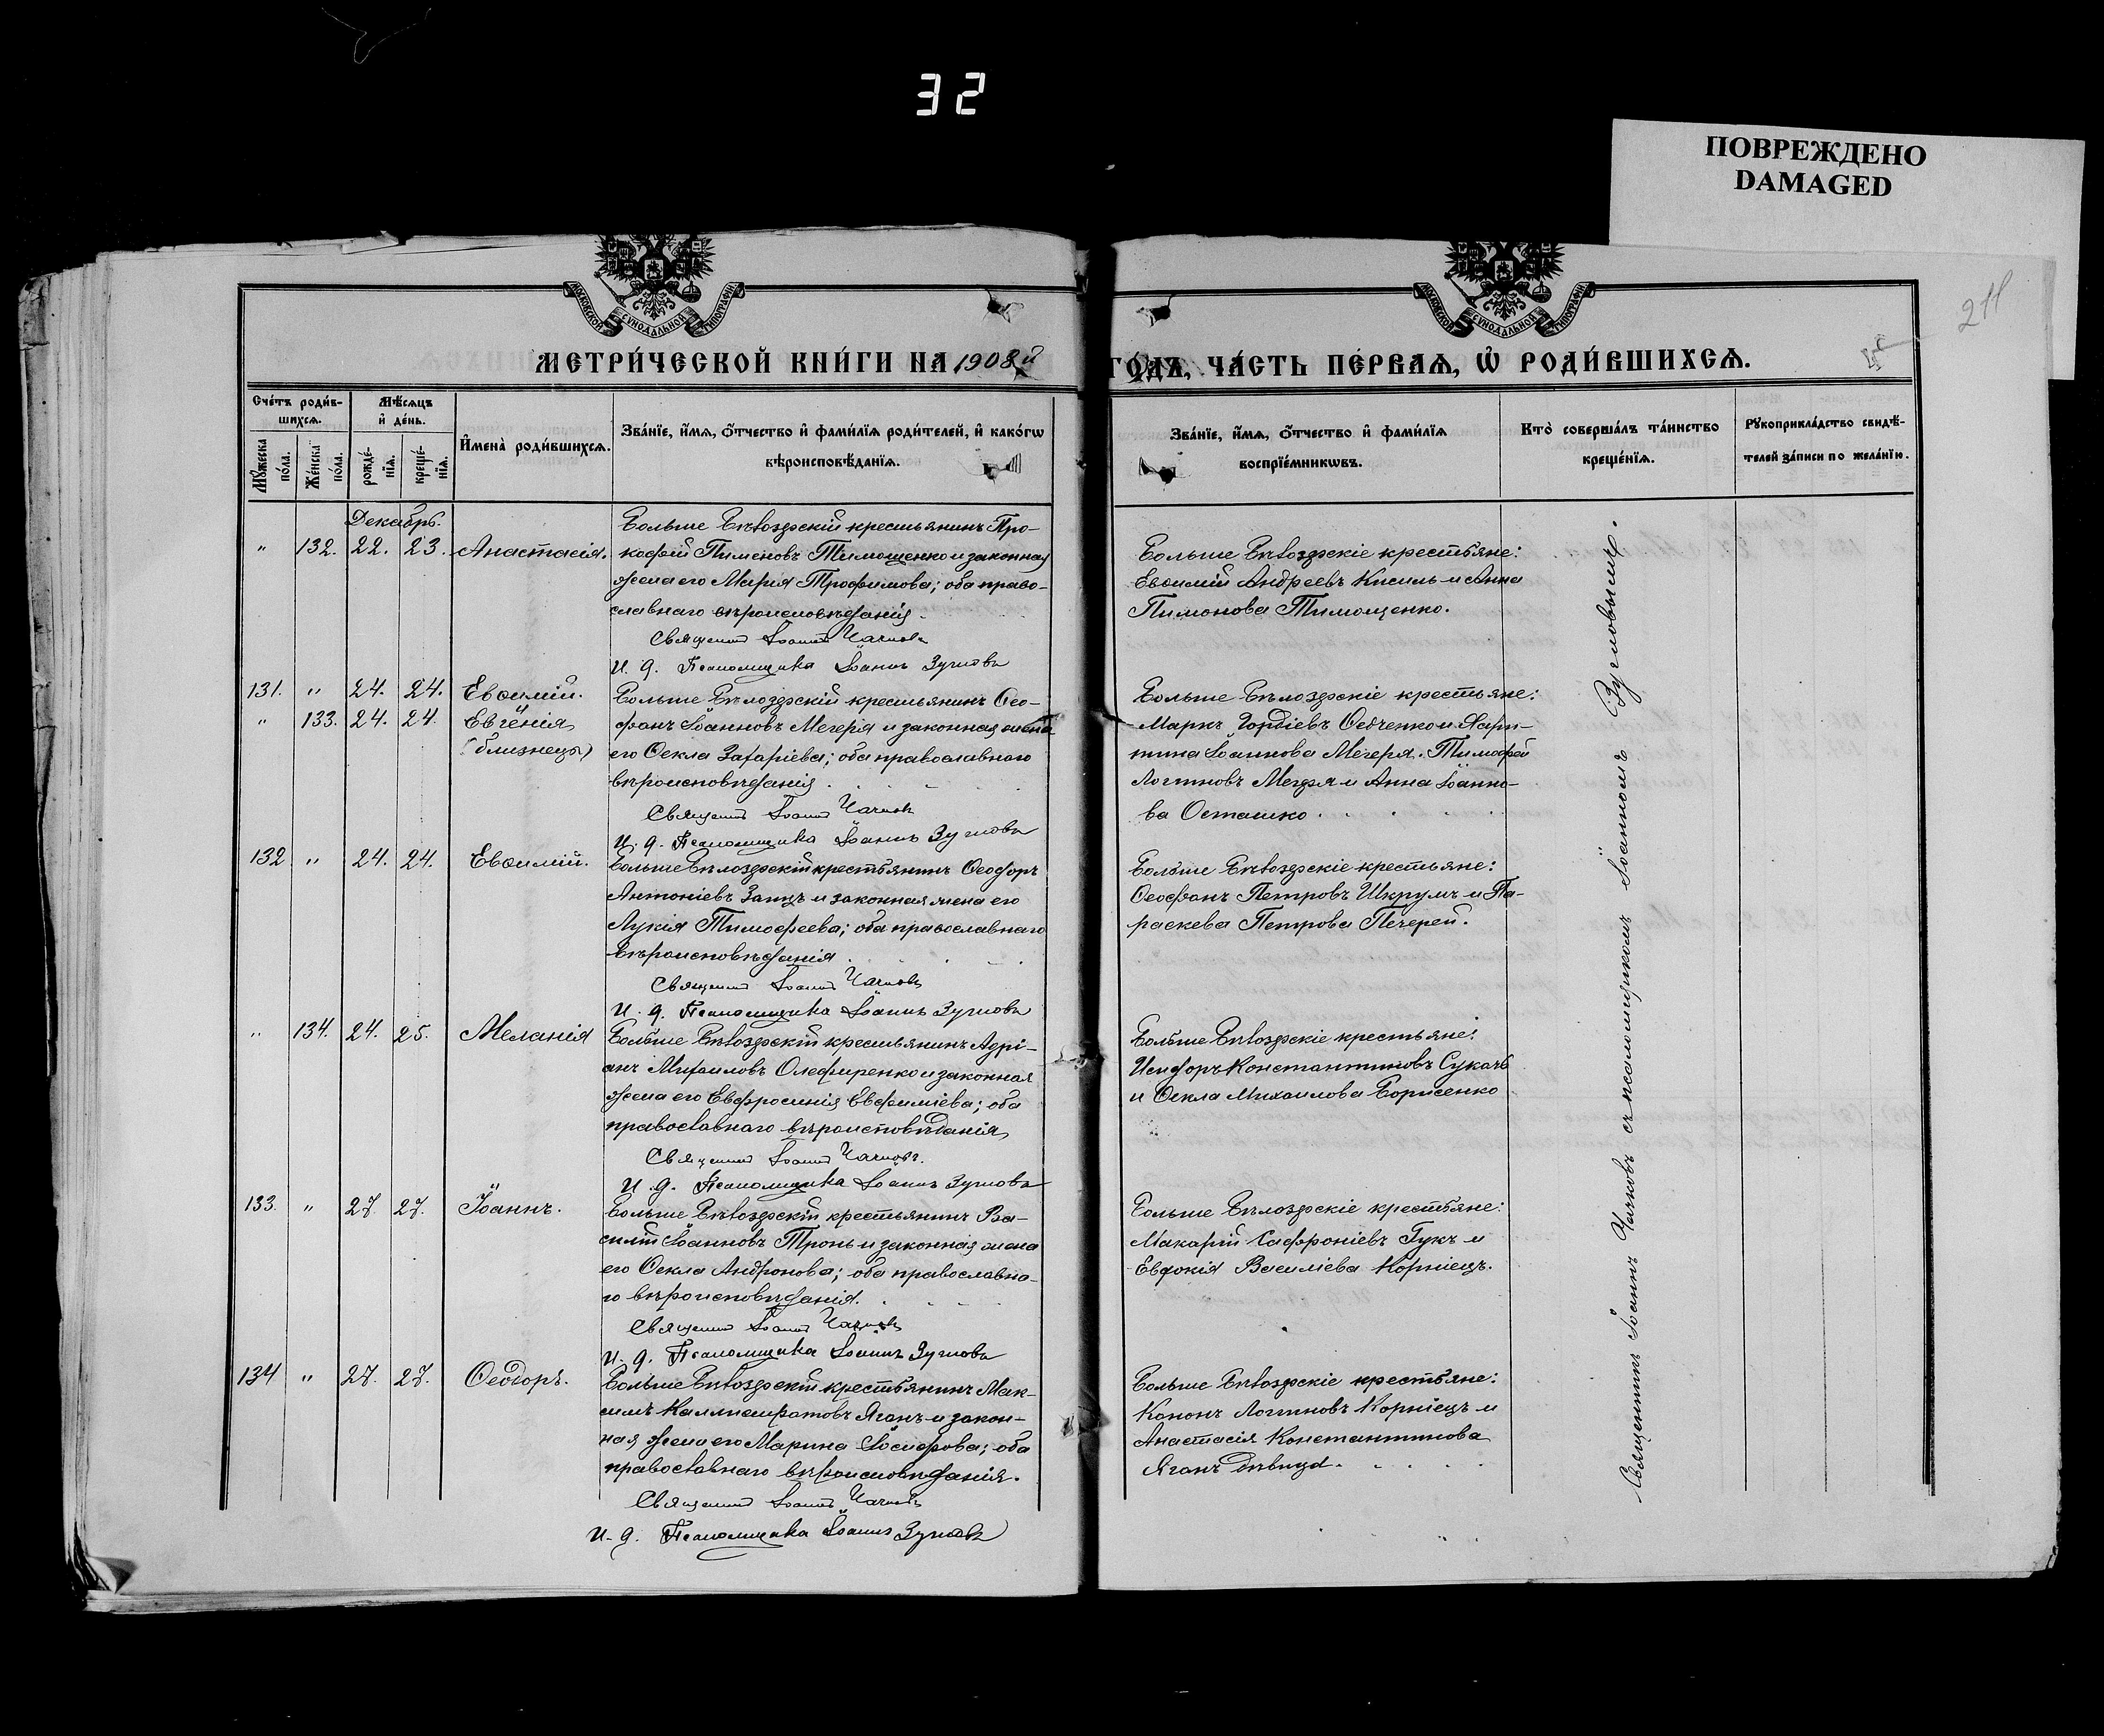 32
ПОВРЕЖДЕНО
DAMAGED
211
МОСКОВСКОЙ СѴНОДАЛЬНОЙ ТИПОГРАФІИ
МОСКОВСКОЙ СѴНОДАЛЬНОЙ ТИПОГРАФІИ
МЕТРИ́ЧЕСКОЙ КНИ́ГИ НА 1908й
ГО́ДЪ, ЧА́СТЬ ПЕ́РВАѦ, Ѡ҆ РОДИ́ВШИХСѦ.
Сче́тъ роди́в-
шихсѧ.
Мѣ́сѧцъ
и҆ де́нь.
Мꙋ́жеска
по́ла.
Же́нска
по́ла.
рожде́-
нїѧ.
креще́-
нїѧ.
И҆мена̀ роди́вшихсѧ.
Зва́нїе, и҆́мѧ, ѻ҆́тчество и҆ фами́лїѧ роди́телей, и҆ како́гѡ
вѣроисповѣ́данїѧ.
Зва́нїе, и҆́мѧ, ѻ҆́тчество и҆ фами́лїѧ
воспрїе́мникѡвъ.
Кто̀ соверша́лъ та́инство
креще́нїѧ.
Рꙋкоприкла́дство свидѣ́-
телей за́писи по жела́нїю.
Декабрь.
" 132. 22. 23. Анастасія.
Больше Бѣлозерскій крестьянинъ Про-
кофій Пименовъ Тимощенко и законная
жена его Марія Трофимова; оба право-
славнаго вѣроисповѣданія.
Священникъ Іоаннъ Чачковъ
И. д. Псаломщика Іоаннъ Зумовъ
Больше Бѣлозерскіе крестьяне:
Евѳимій Андреевъ Кисиль и Анна
Пимонова Тимощенко.
131. " 24. 24. Евѳимій.
" 133. 24. 24. Евгенія
(близнецы)
Больше Бѣлозерскій крестьянинъ Ѳео-
фанъ Іоанновъ Мегеря и законная жена
его Ѳекла Захаріева; оба православнаго
вѣроисповѣданія.
Священникъ Іоаннъ Чачковъ
И. д. Псаломщика Іоаннъ Зумовъ
Больше Бѣлозерскіе крестьяне:
Маркъ Гордіевъ Ѳедченко и Хари-
тина Іоаннова Мегеря. Тимофей
Логиновъ Мегеря и Анна Іоанно-
ва Осташко.
132 " 24. 24. Евѳимій.
Больше Бѣлозерскій крестьянинъ Ѳеодоръ
Антоніевъ Заяцъ и законная жена его
Лукія Тимофеева; оба православнаго
вѣроисповѣданія.
Священникъ Іоаннъ Чачковъ
И. д. Псаломщика Іоаннъ Зумовъ
Больше Бѣлозерскіе крестьяне:
Ѳеофанъ Петровъ Шкрумъ и Па-
раскева Петрова Печерей.
" 134. 24. 25. Меланія
Больше Бѣлозерскій крестьянинъ Адрі-
анъ Михаиловъ Олефиренко и законная
жена его Евфросинія Евфиміева; оба
православнаго вѣроисповѣданія
Священникъ Іоаннъ Чачковъ.
И. д. Псаломщика Іоаннъ Зумовъ
Больше Бѣлозерскіе крестьяне:
Исидоръ Константиновъ Сукачъ
и Ѳекла Михаилова Борисенко
133. " 27. 27. Іоаннъ.
Больше Бѣлозерскій крестьянинъ Ва-
силій Іоанновъ Тронь и законная жена
его Ѳекла Андронова; оба православна-
го вѣроисповѣданія.
Священникъ Іоаннъ Чачковъ
И. д. Псаломщика Іоаннъ Зумовъ
Больше Бѣлозерскіе крестьяне:
Макарій Сафроніевъ Гукъ и
Евдокія Василіева Корніецъ.
134 " 27. 27. Ѳеодоръ.
Больше Бѣлозерскій крестьянинъ Мак-
симъ Каллистратовъ Яганъ и закон-
ная жена его Марина Іосифова; оба
православнаго вѣроисповѣданія.
Священникъ Іоаннъ Чачковъ
И. д. Псаломщика Іоаннъ Зумовъ
Больше Бѣлозерскіе крестьяне:
Кононъ Логиновъ Корніецъ и
Анастасія Константинова
Яганъ дѣвица.
Священникъ Іоаннъ Чачковъ съ псаломщикомъ Іоанномъ Зумовымъ.